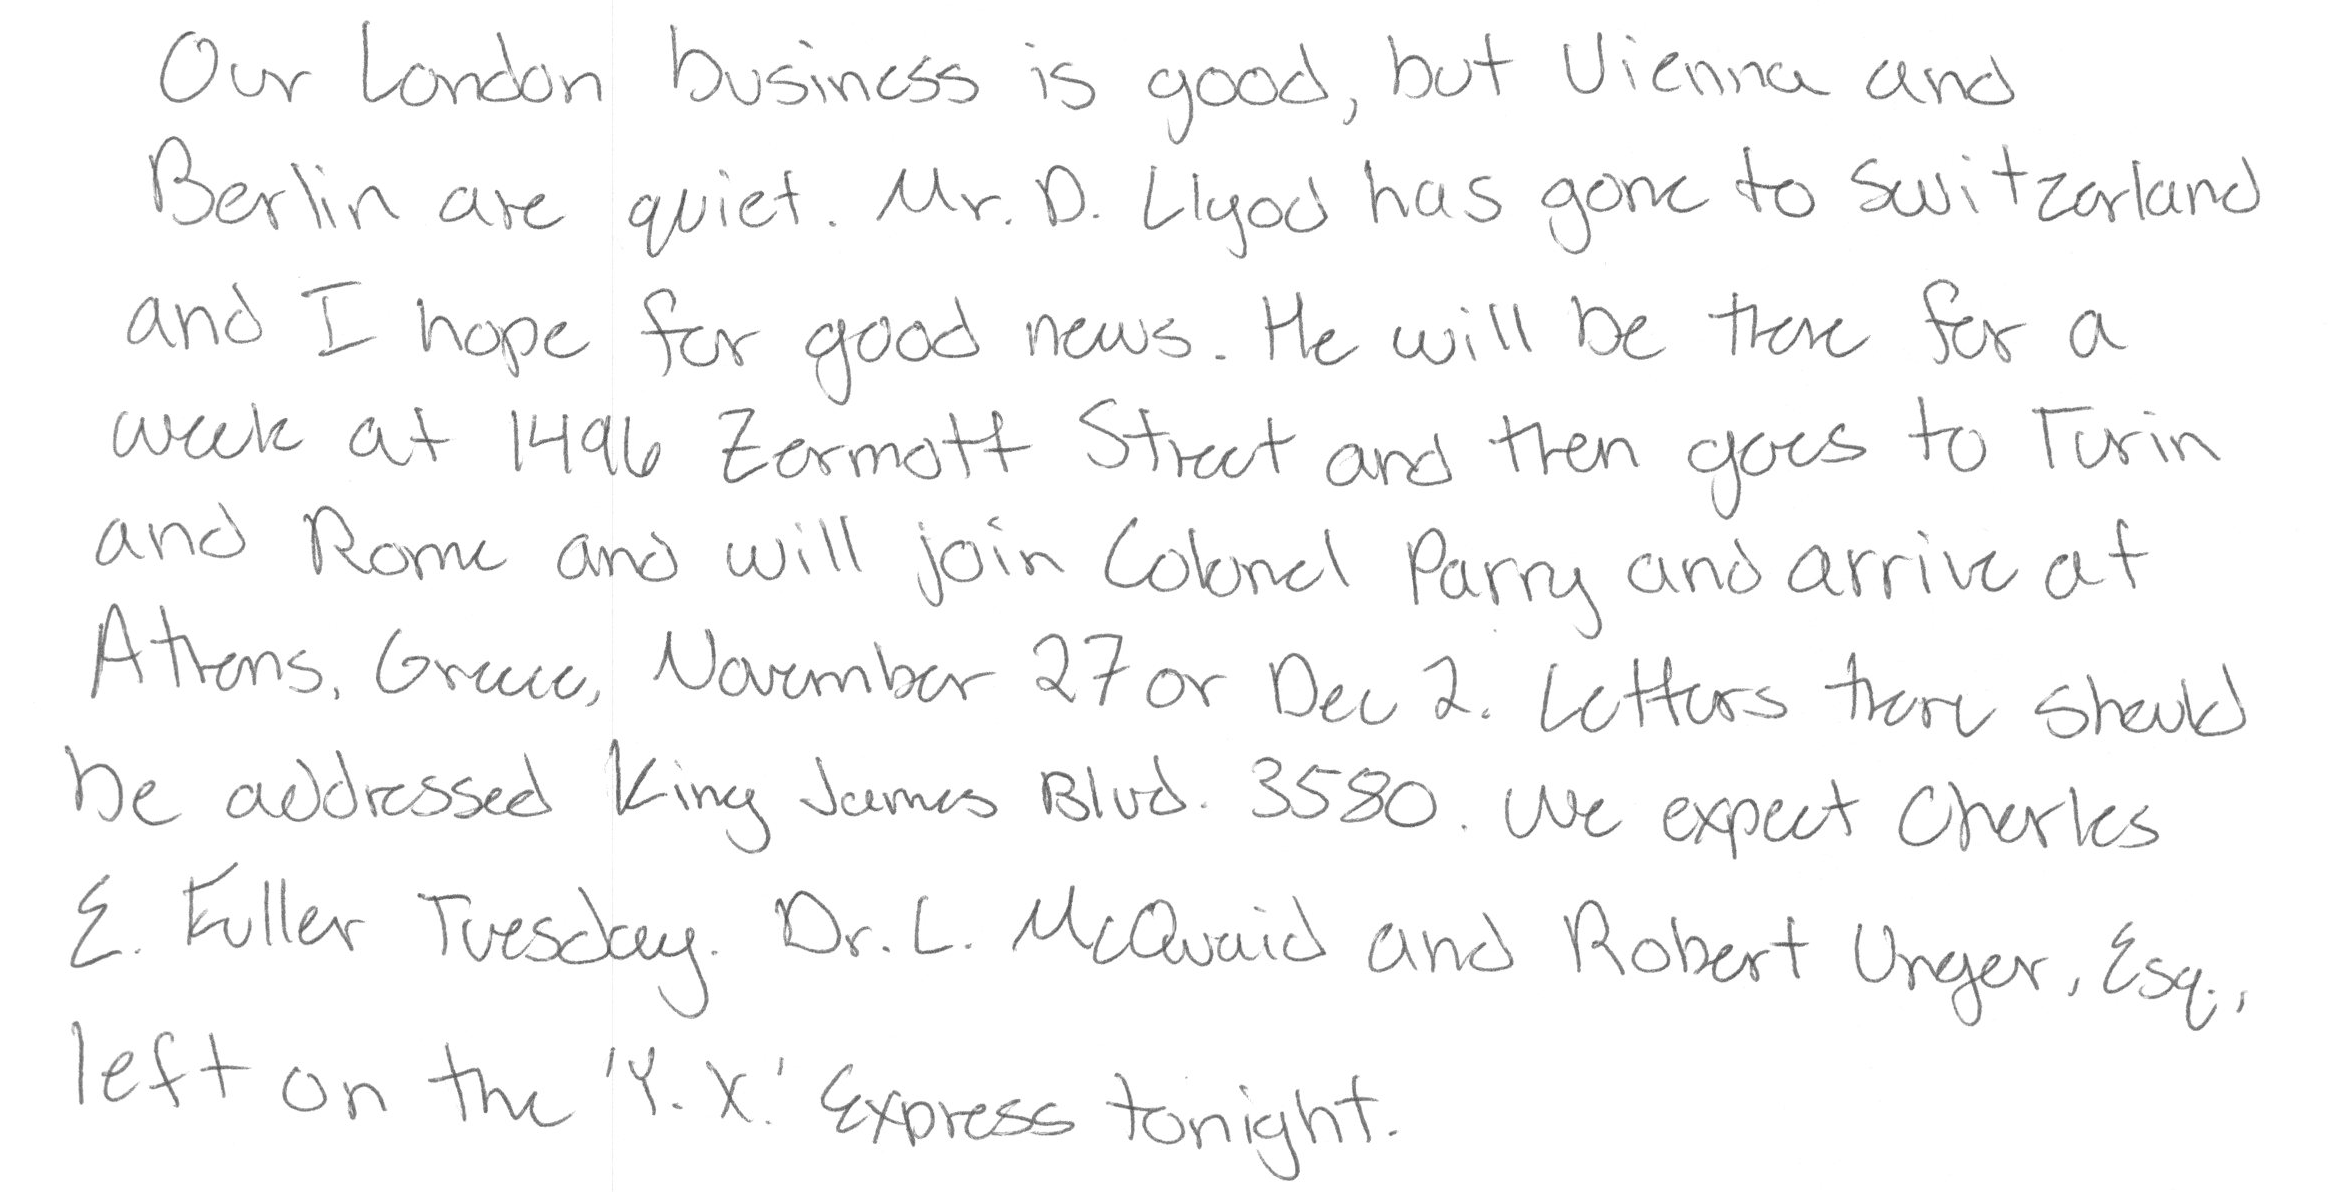 Our London business is good, but Vienna and
Berlin are quiet. Mr. D. Llyod has gone to Switzerland
and I hope for good news. He will be there for a
week at 1496 Zermott Street and then goes to Turin
and Rome and will join Colonel Parry and arrive at
Athens, Greece, November 27 or Dec 2. Letters there should
be addressed King James Blvd. 3580. We expect Charles
E. Fuller Tuesday. Dr. L. McQuaid and Robert Unger, Esq.,
left on the 'Y. X.' Express tonight.